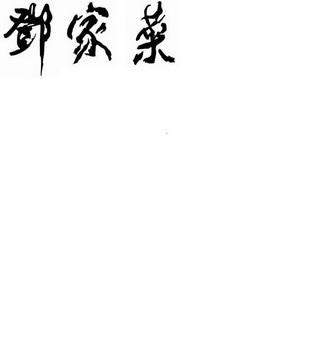 鄧家菜